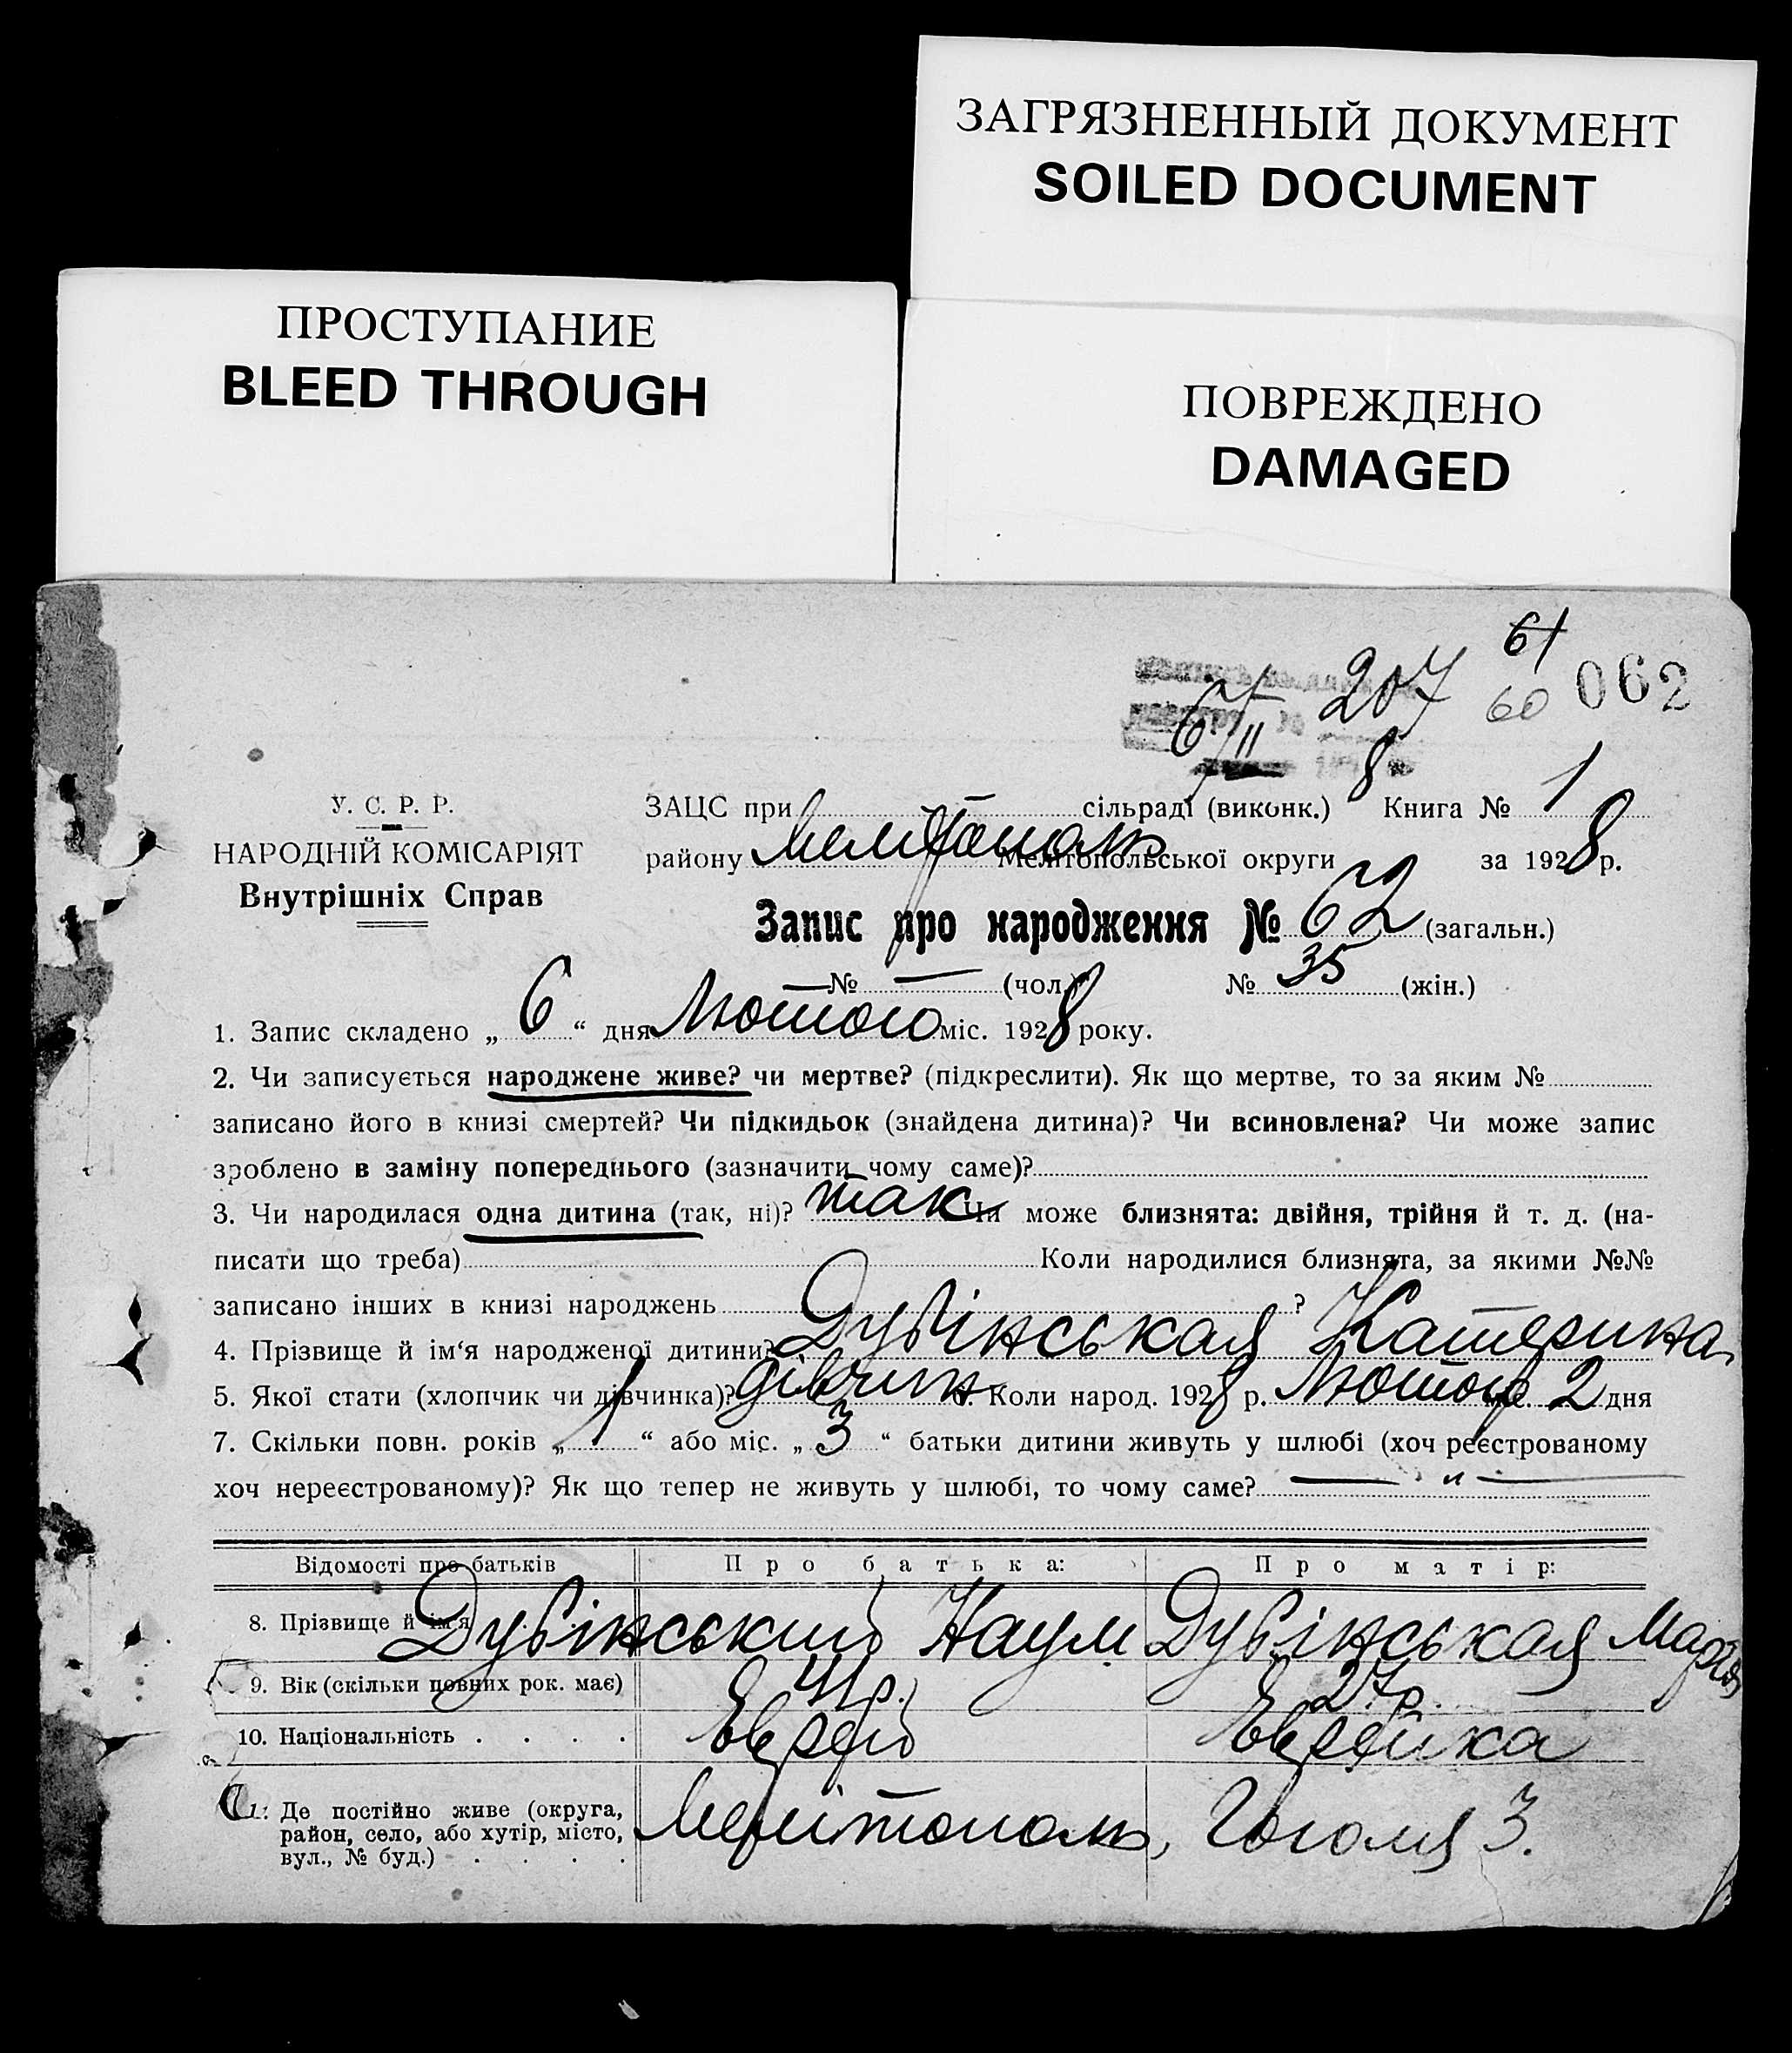 ЗАГРЯЗНЕННЫЙ ДОКУМЕНТ
SOILED DOCUMENT
ПРОСТУПАНИЕ
BLEED THROUGH
ПОВРЕЖДЕНО
DAMAGED
61
207 60 062
6/II 8
У. С. Р. Р.
НАРОДНІЙ КОМІСАРІЯТ
Внутрішніх Справ
ЗАЦС при — сільраді (виконк.) Книга № 1
району Мелітополь Мелітопольської округи за 1928 р.
Запис про народження № 62 (загальн.)
№ — (чол.) № 35 (жін.)
1. Запис складено „ 6 “ дня Лютого міс. 1928 року.
2. Чи записується народжене живе? чи мертве? (підкреслити). Як що мертве, то за яким №
записано його в книзі смертей? Чи підкидьок (знайдена дитина)? Чи всиновлена? Чи може запис
зроблено в заміну попереднього (зазначити чому саме)?
3. Чи народилася одна дитина (так, ні)? так Чи може близнята: двійня, трійня й т. д. (на-
писати що треба) Коли народилися близнята, за якими №№
записано інших в книзі народжень ?
4. Прізвище й ім‘я народженої дитини? Дубінськая Катерина
5. Якої стати (хлопчик чи дівчинка)? дівчин 6. Коли народ. 1928 р. Лютого міс. 2 дня
7. Скільки повн. років „ 1 “ або міс. „ 3 “ батьки дитини живуть у шлюбі (хоч реєстрованому
хоч нереєстрованому)? Як що тепер не живуть у шлюбі, то чому саме? — „ —
Відомості про батьків Про батька: Про матір:
8. Прізвище й ім'я Дубінський Наум Дубінськая Марія
9. Вік (скільки повних рок. має) 41 р. 27 р.
10. Національність . . . . Еврей Еврейка
11. Де постійно живе (округа,
район, село, або хутір, місто,
вул., № буд.) . . . . Мелітополь, Гоголя 3.